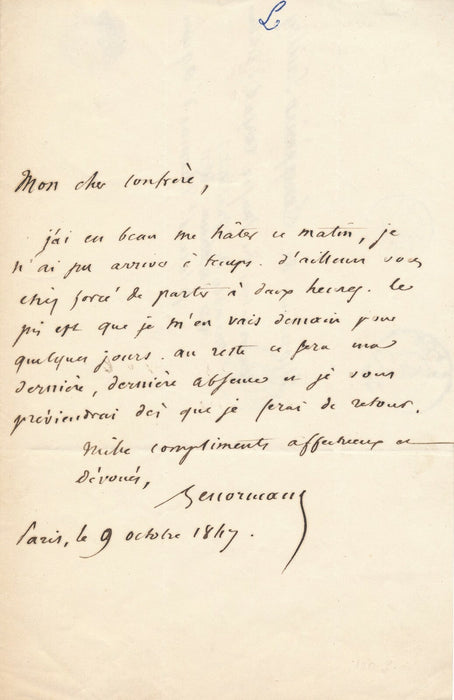 L
Mon cher confrère,
j'ai eu beau me hâter ce matin, je
n'ai pu arriver à temps. d'ailleurs vous
étiez forcé de partir à deux heures. le
pis est que je m'en vais demain pour
quelques jours. au reste ce sera ma
dernière, dernière absence et je vous
préviendrai dès que je serai de retour.
mille compliments affectueux et
dévoués,
Lenormant
Paris, le 9 octobre 1847.